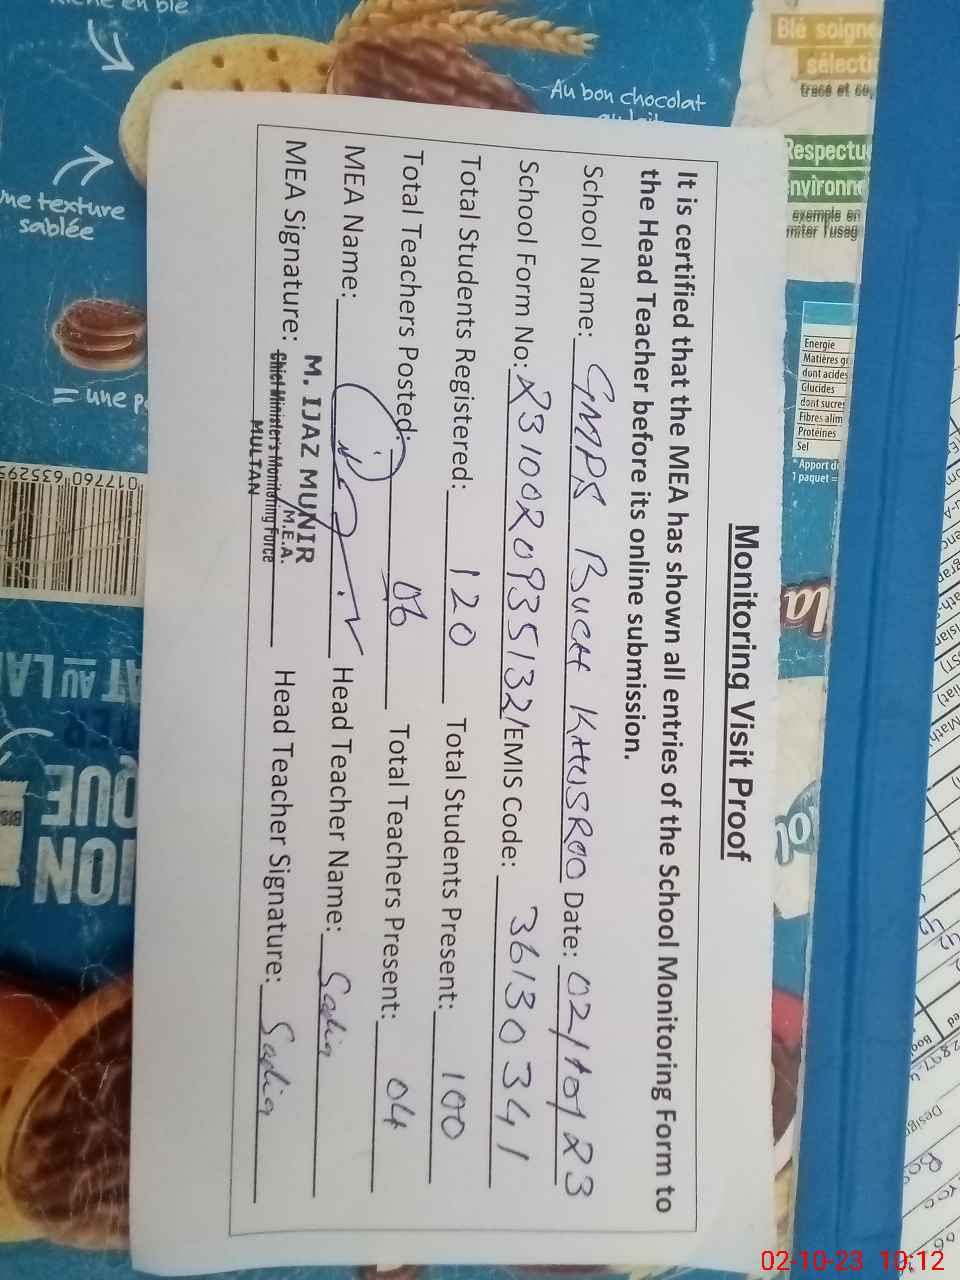 Monitoring Visit Proof
It is certified that the MEA has shown all entries of the School Monitoring Form to
the Head Teacher before its online submission.
School Name: GMPS BUCH KHUSROO Date: 02/10/23
School Form No: 2310020935132/EMIS Code: 36130341
Total Students Registered: 120 Total Students Present: 100
Total Teachers Posted: 06 Total Teachers Present: 04
MEA Name: Head Teacher Name: Sadia
M. IJAZ MUNIR
M.E.A.
MEA Signature: Head Teacher Signature: Sadia
Chief Minister's Monitoring Force
MULTAN
Au bon chocolat
au lait
Blé soigné
sélecti
Respectu
nvironne
exemple en
Energie
Matières gr
dont acides
Glucides
dont sucres
Fibres alim
Protéines
Sel
* Apport d
1 paquet =
une texture
sablée
= une p
017760 635295
02-10-23 10:12